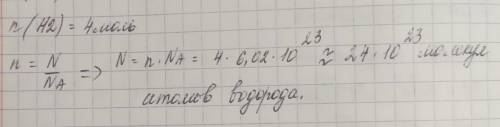 n(H2) = 4 моль
n = N/NA => N = n · NA = 4 · 6,02 · 10^23 ≈ 24 · 10^23 молекул
атомов водорода.